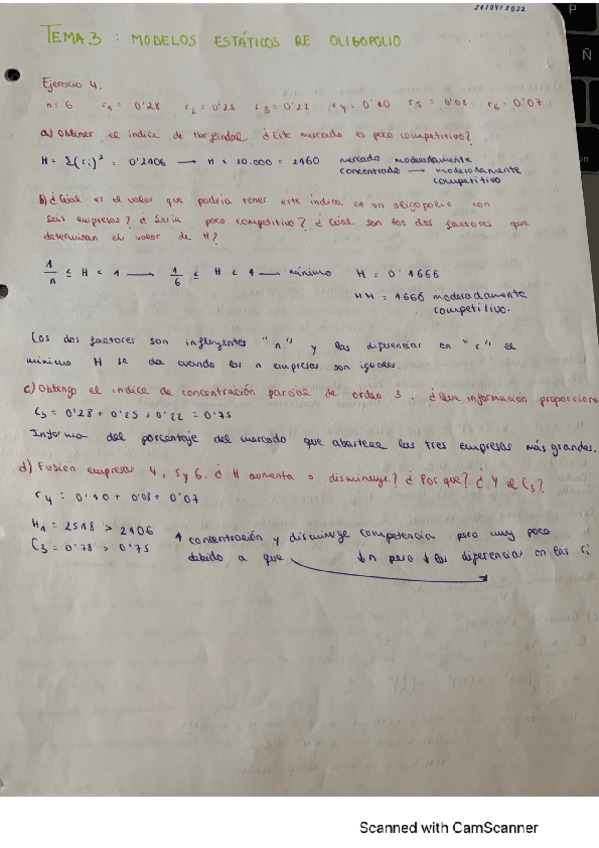 21/04/2022
TEMA 3 : MODELOS ESTÁTICOS DE OLIGOPOLIO
Ejercicio 4.
n = 6 r1 = 0'28 r2 = 0'25 r3 = 0'22 r4 = 0'10 r5 = 0'08 r6 = 0'07
a) Obtener el indice de Herfindal. ¿Este mercado es poco competitivo?
H = Σ(ri)² = 0'2106 → H x 10.000 = 2160 mercado moderadamente
concentrado → moderadamente
competitivo
b) ¿Cúal es el valor que podria tener este índice en un oligopolio con
seis empresas? ¿Seria poco competitivo? ¿Cúal son los dos factores que
determinan el valor de H?
1/n ≤ H < 1 → 1/6 ≤ H < 1 — mínimo H = 0'1666
HH = 1666 moderadamente
competitivo.
Los dos factores son influyentes "n" y las diferencias en "r" el
mínimo H se da cuando las n empresas son iguales.
c) Obtengo el indice de concentración parcial de orden 3. ¿Que información proporciona
C3 = 0'28 + 0'25 + 0'22 = 0'75
Informa del porcentaje del mercado que abastece las tres empresas más grandes.
d) Fusión empresas 4, 5 y 6. ¿H aumenta o disminuye? ¿Por que? ¿Y el C3?
r4 = 0'10 + 0'08 + 0'07
H1 = 2518 > 2106
C3 = 0'78 > 0'75
↑ concentración y disminuye competencia pero muy poco
debido a que ↓n pero ↓ las diferencias en las ri
P
Ñ
Scanned with CamScanner